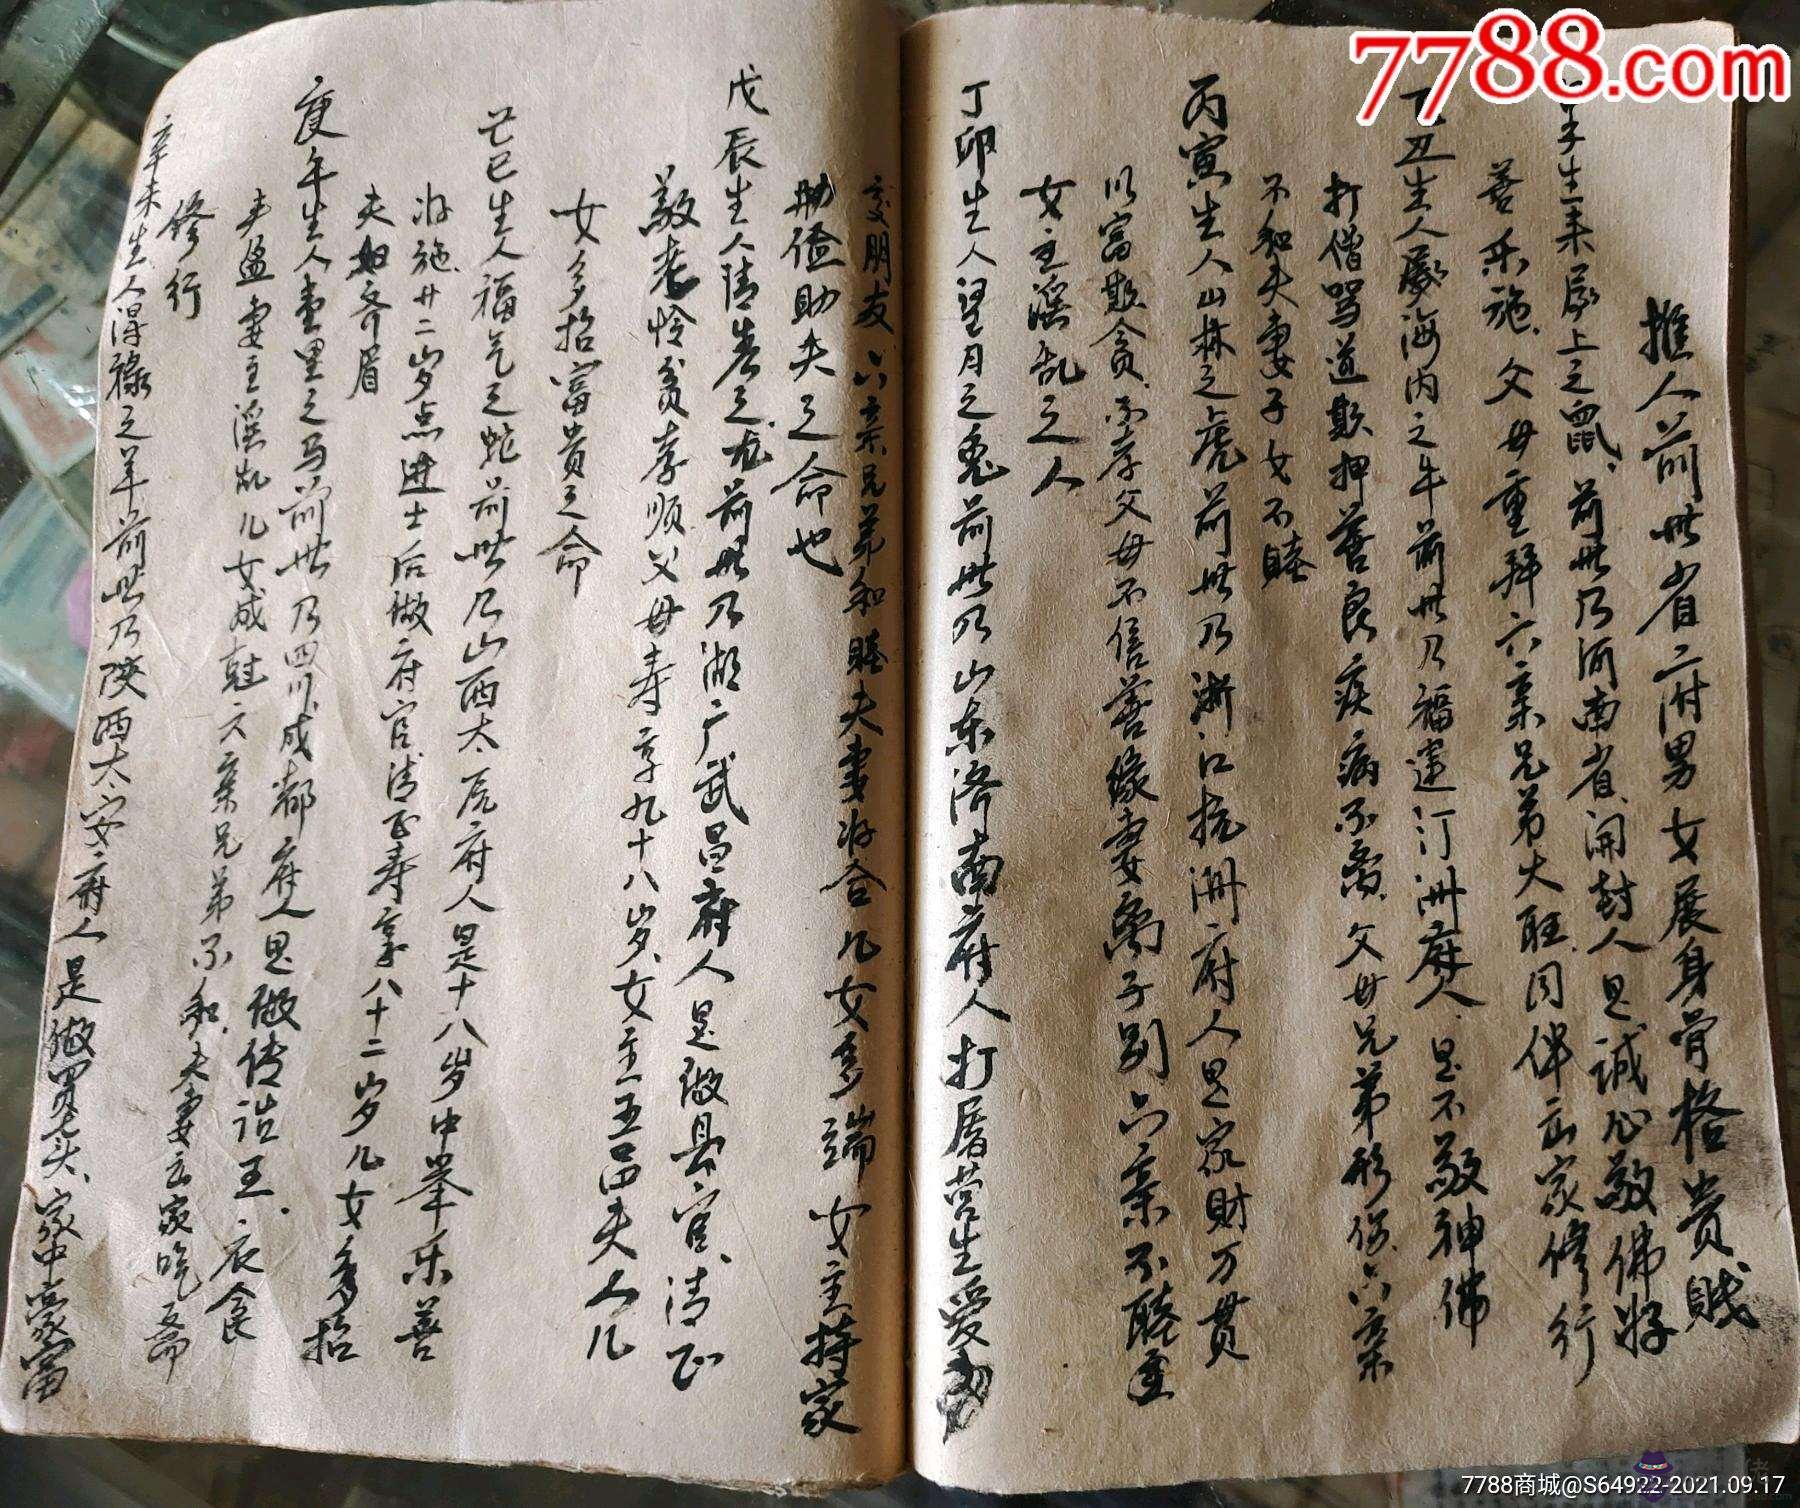 7788.com
推人前世省二府男女展身骨格贵贱
子生来屋上之鼠、前世乃河南省、开封人是诚心敬佛好
善乐施、父母重拜六亲兄弟大旺同伴出家修行
丑生人海内之牛前世乃福建汀洲府人、是不敬神佛
打僧骂道欺押善良疾病不离、父母兄弟形伤、六亲
不和夫妻子女不睦
丙寅生人山林之虎前世乃浙江杭洲府人是家财万贯
以富欺贪、不孝父母不信善缘妻离子别六亲不睦
女主淫乱之人
丁卯生人望月之兔前世乃山东济南府人打屠营生爱
交朋友、六亲兄弟和睦夫妻好合儿女多端女主持家
勤俭助夫之命也
戊辰生人清之龙前世乃湖广武昌府人是做县官、清正
敬老怜贫孝顺父母寿享九十八岁、女主五品夫人儿
女多招富贵之命
巳生人福气之蛇前世乃山西太原府人是十八岁中举乐善
好施、廿二岁点进士后做府官清正寿享八十二岁儿女多招
夫妇齐眉
庚午生人堂里之马前世乃四川成都府人是做传王、衣食
丰盈妻主淫乱儿女成六亲兄弟不和、夫妻出家吃斋
修行
辛未生人得禄之羊前世乃陕西太安府人是做买卖、家中豪富
7788商城@S64922-2021.09.17